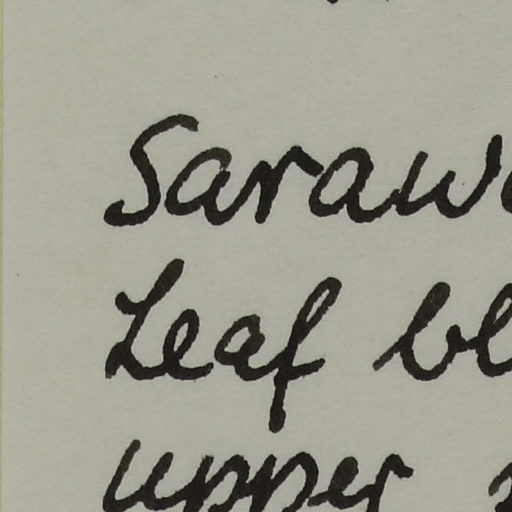 Saraw
Leaf bl
upper